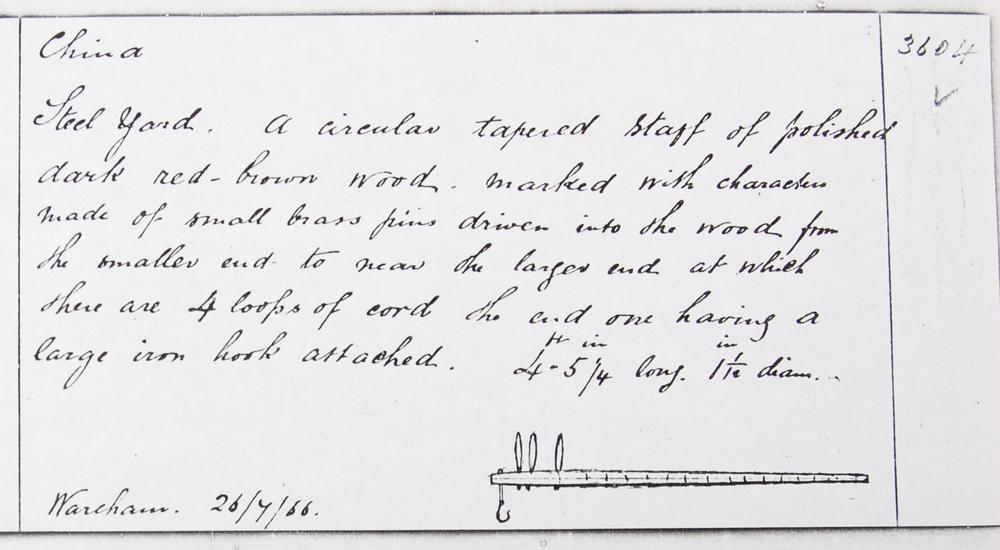 China
3604
Steel Yard. A circular tapered staff of polished
dark red-brown wood. marked with characters
made of small brass pins driven into the wood from
the smaller end to near the larger end at which
there are 4 loops of cord the end one having a
large iron hook attached. 4 ft - 5 1/4 in long. 1 in diam.
Wareham. 26/7/66.